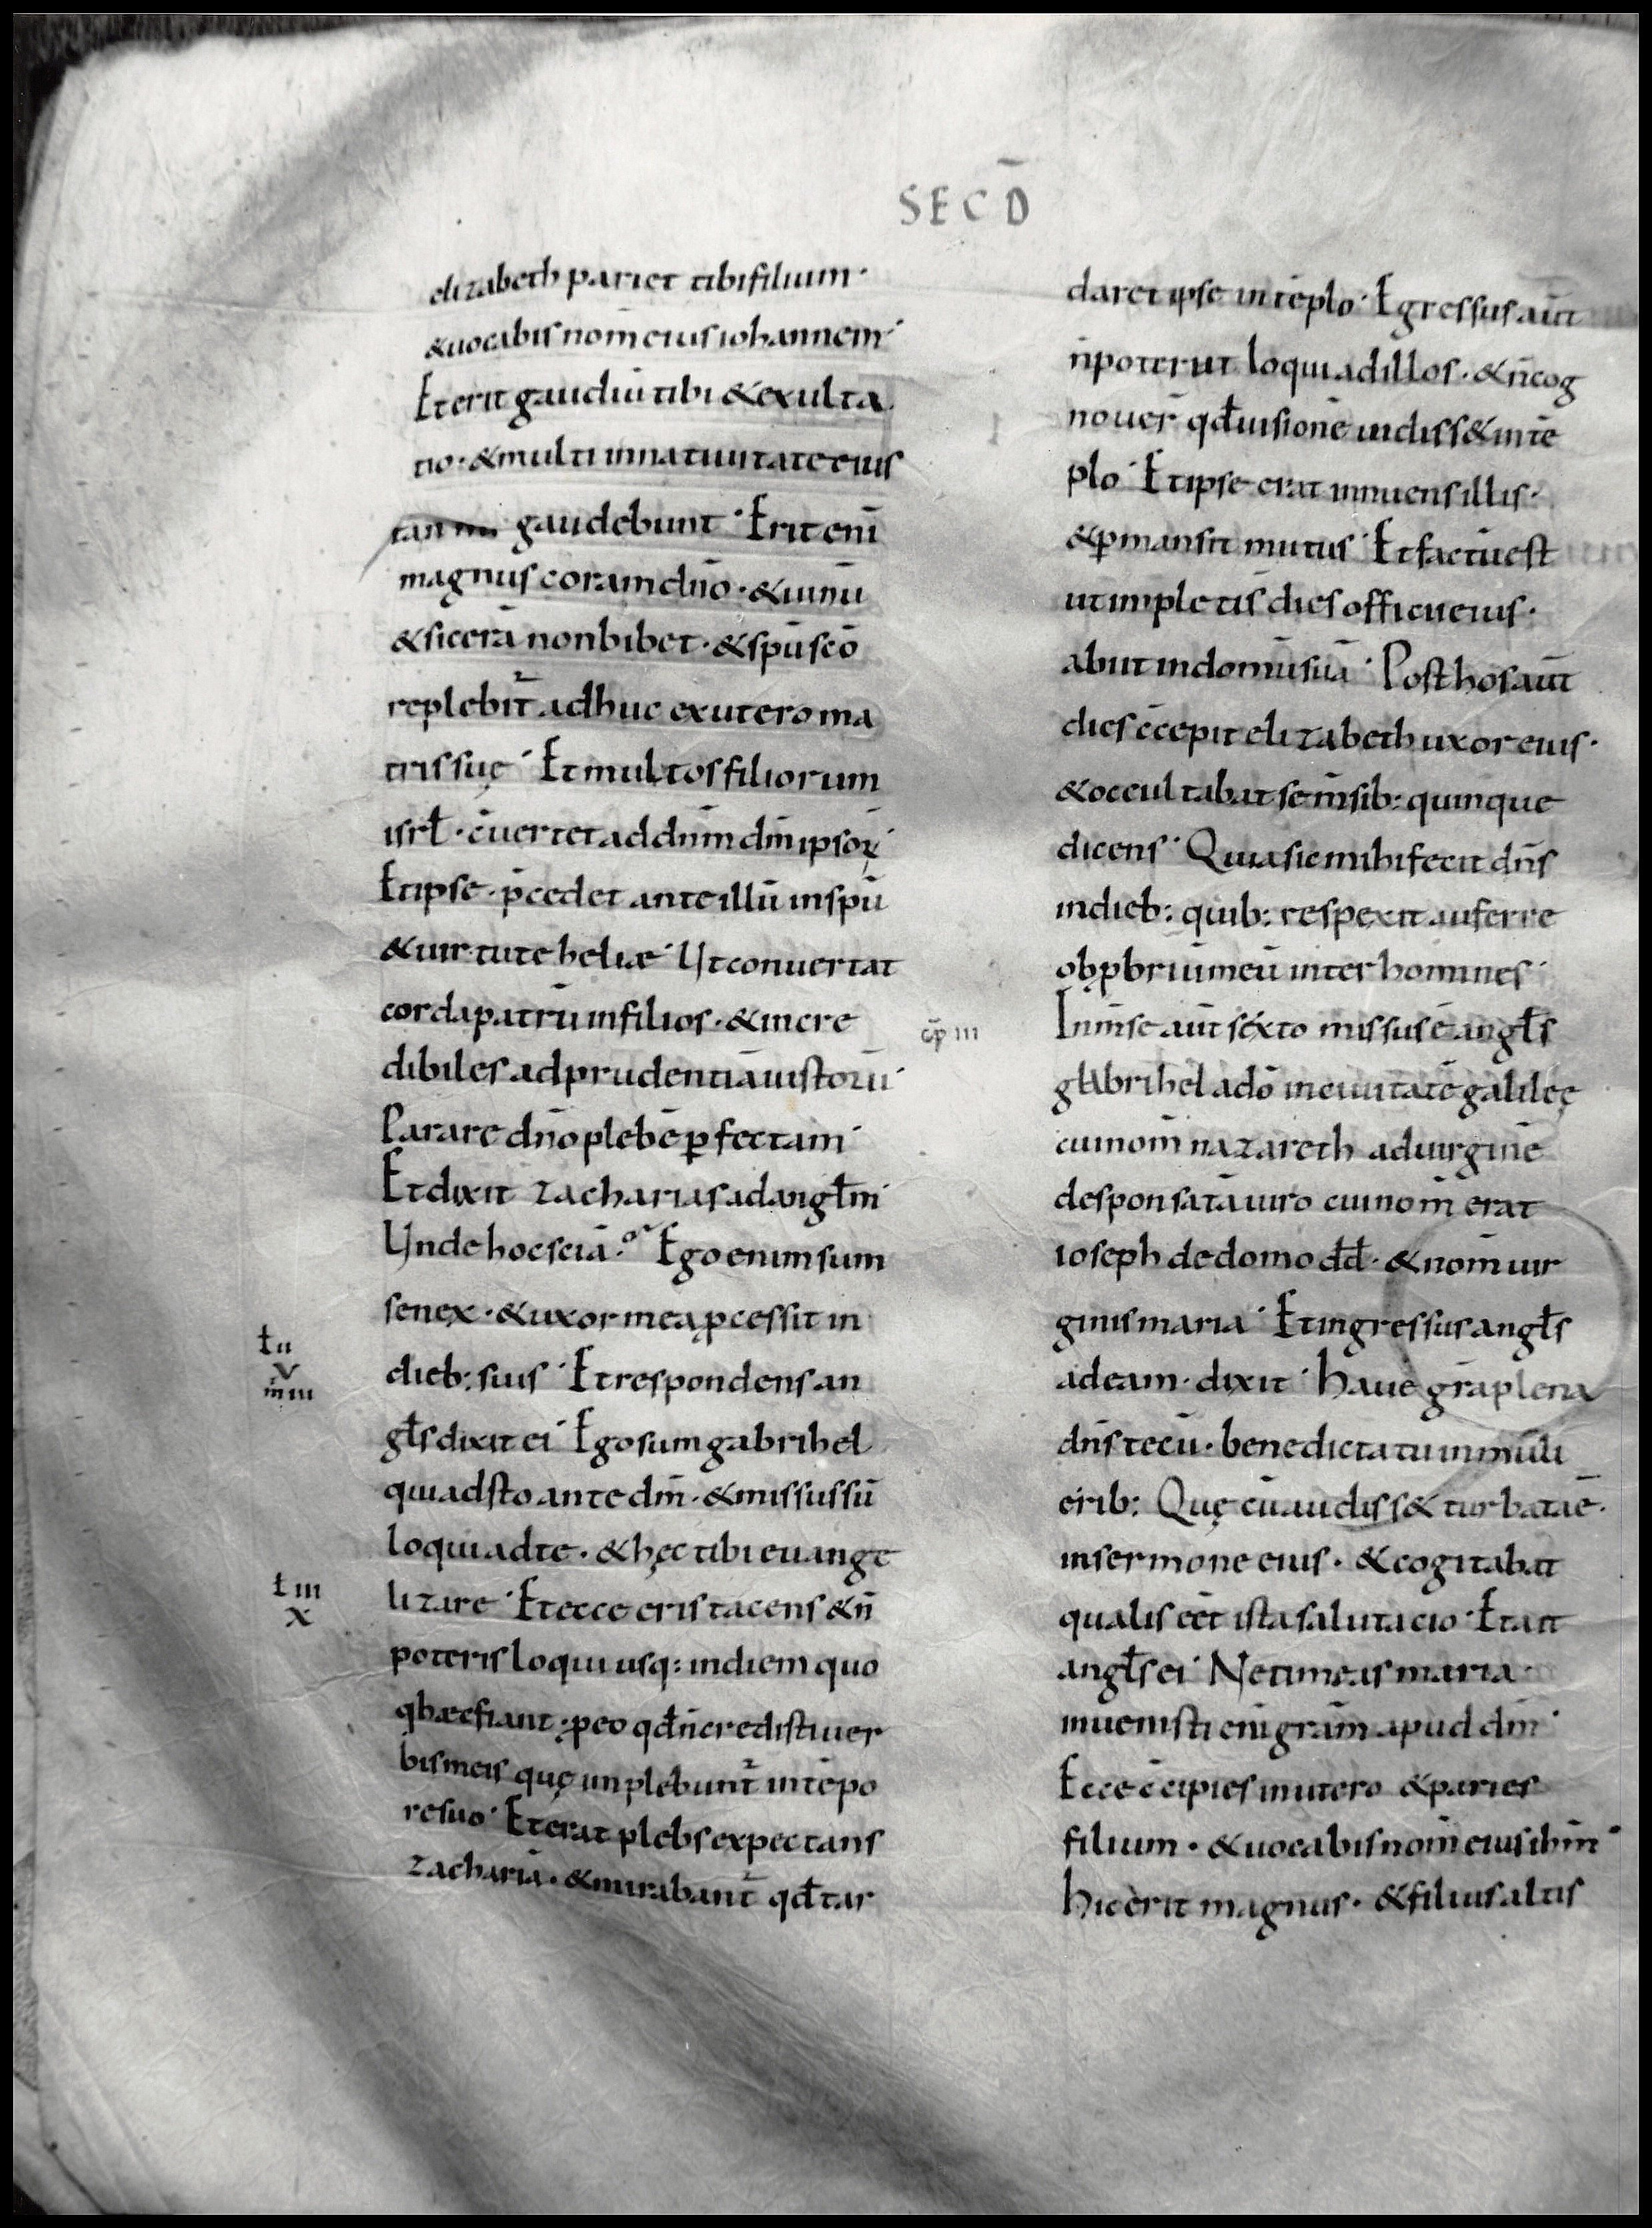 SECD̄
elizabeth pariet tibi filium·
&uocabis nom̄ eius iohannem·
Et erit gaudiū tibi &exulta
tio·&multi in natiuitate eius
gaudebunt· Erit eni̅
magnus coram dn̄o·&uinū
&sicerā non bibet·&spū scō
replebit᷑ adhuc ex utero ma
tris suę· Et multos filiorum
isrƚ·c̄uertet ad dn̄m dm̄ ipsoꝝ·
Et ipse·p̄cedet ante illū in spū
&uirtute heliæ· Ut conuertat
corda patrū in filios·&incre
dibiles ad prudentiā iustorū·
Parare dn̄o plebē ꝑfectam·
Et dixit zacharias ad angƚm·
Unde hoc sciā· Ego enim sum
senex·&uxor mea ꝓcessit in
tii
v
m̄ iii
dieb: suis· Et respondens an
gƚs dixit ei· Ego sum gabrihel
qui adsto ante dm̄·&missus sū
loqui ad te·&hęc tibi euange
t iii
x
lizare· Et ecce eris tacens &n̄
poteris loqui usq: in diem quo
hæc fiant·ꝓ eo qđ n̄ credisti uer
bis meis quę implebunt᷑ in tēpo
re suo· Et erat plebs expectans
zachariā·&mirabant᷑ qđ tar
daret ipse in tēplo· Egressus aūt
n̄ poterat loqui ad illos·&n̄cog
nouer̄ qđ uisionē uidiss& in tē
plo· Et ipse erat innuens illis·
&ꝑmansit mutus· Et factū est
ut impleti s̄ dies officii eius·
abiit in domū suā· Post hos aūt
dies c̄cepit elizabeth uxor eius·
&occultabat se m̄sib: quinque
dicens· Quia sic mihi fecit dn̄s
in dieb: quib: respexit auferre
obꝓbriū meū inter homines·
cp̄ iii
In m̄se aūt sexto missus ē angƚs
gabrihel a dō in ciuitatē galileę
cui nom̄ nazareth ad uirginē
desponsatā uiro cui nom̄ erat
ioseph de domo dd̄·&nom̄ uir
ginis maria· Et ingressus angƚs
ad eam·dixit· haue grā plena
dn̄s tecū·benedicta tu in muli
erib: Quę cū audiss& turbata ē·
in sermone eius·&cogitabat
qualis eēt ista salutacio· Et ait
angƚs ei· Ne timeas maria·
inuenisti eni̅ gram̄ apud dm̄·
Ecce c̄cipies in utero &paries
filium·&uocabis nom̄ eius ihm̄·
hic erit magnus·&filius altis